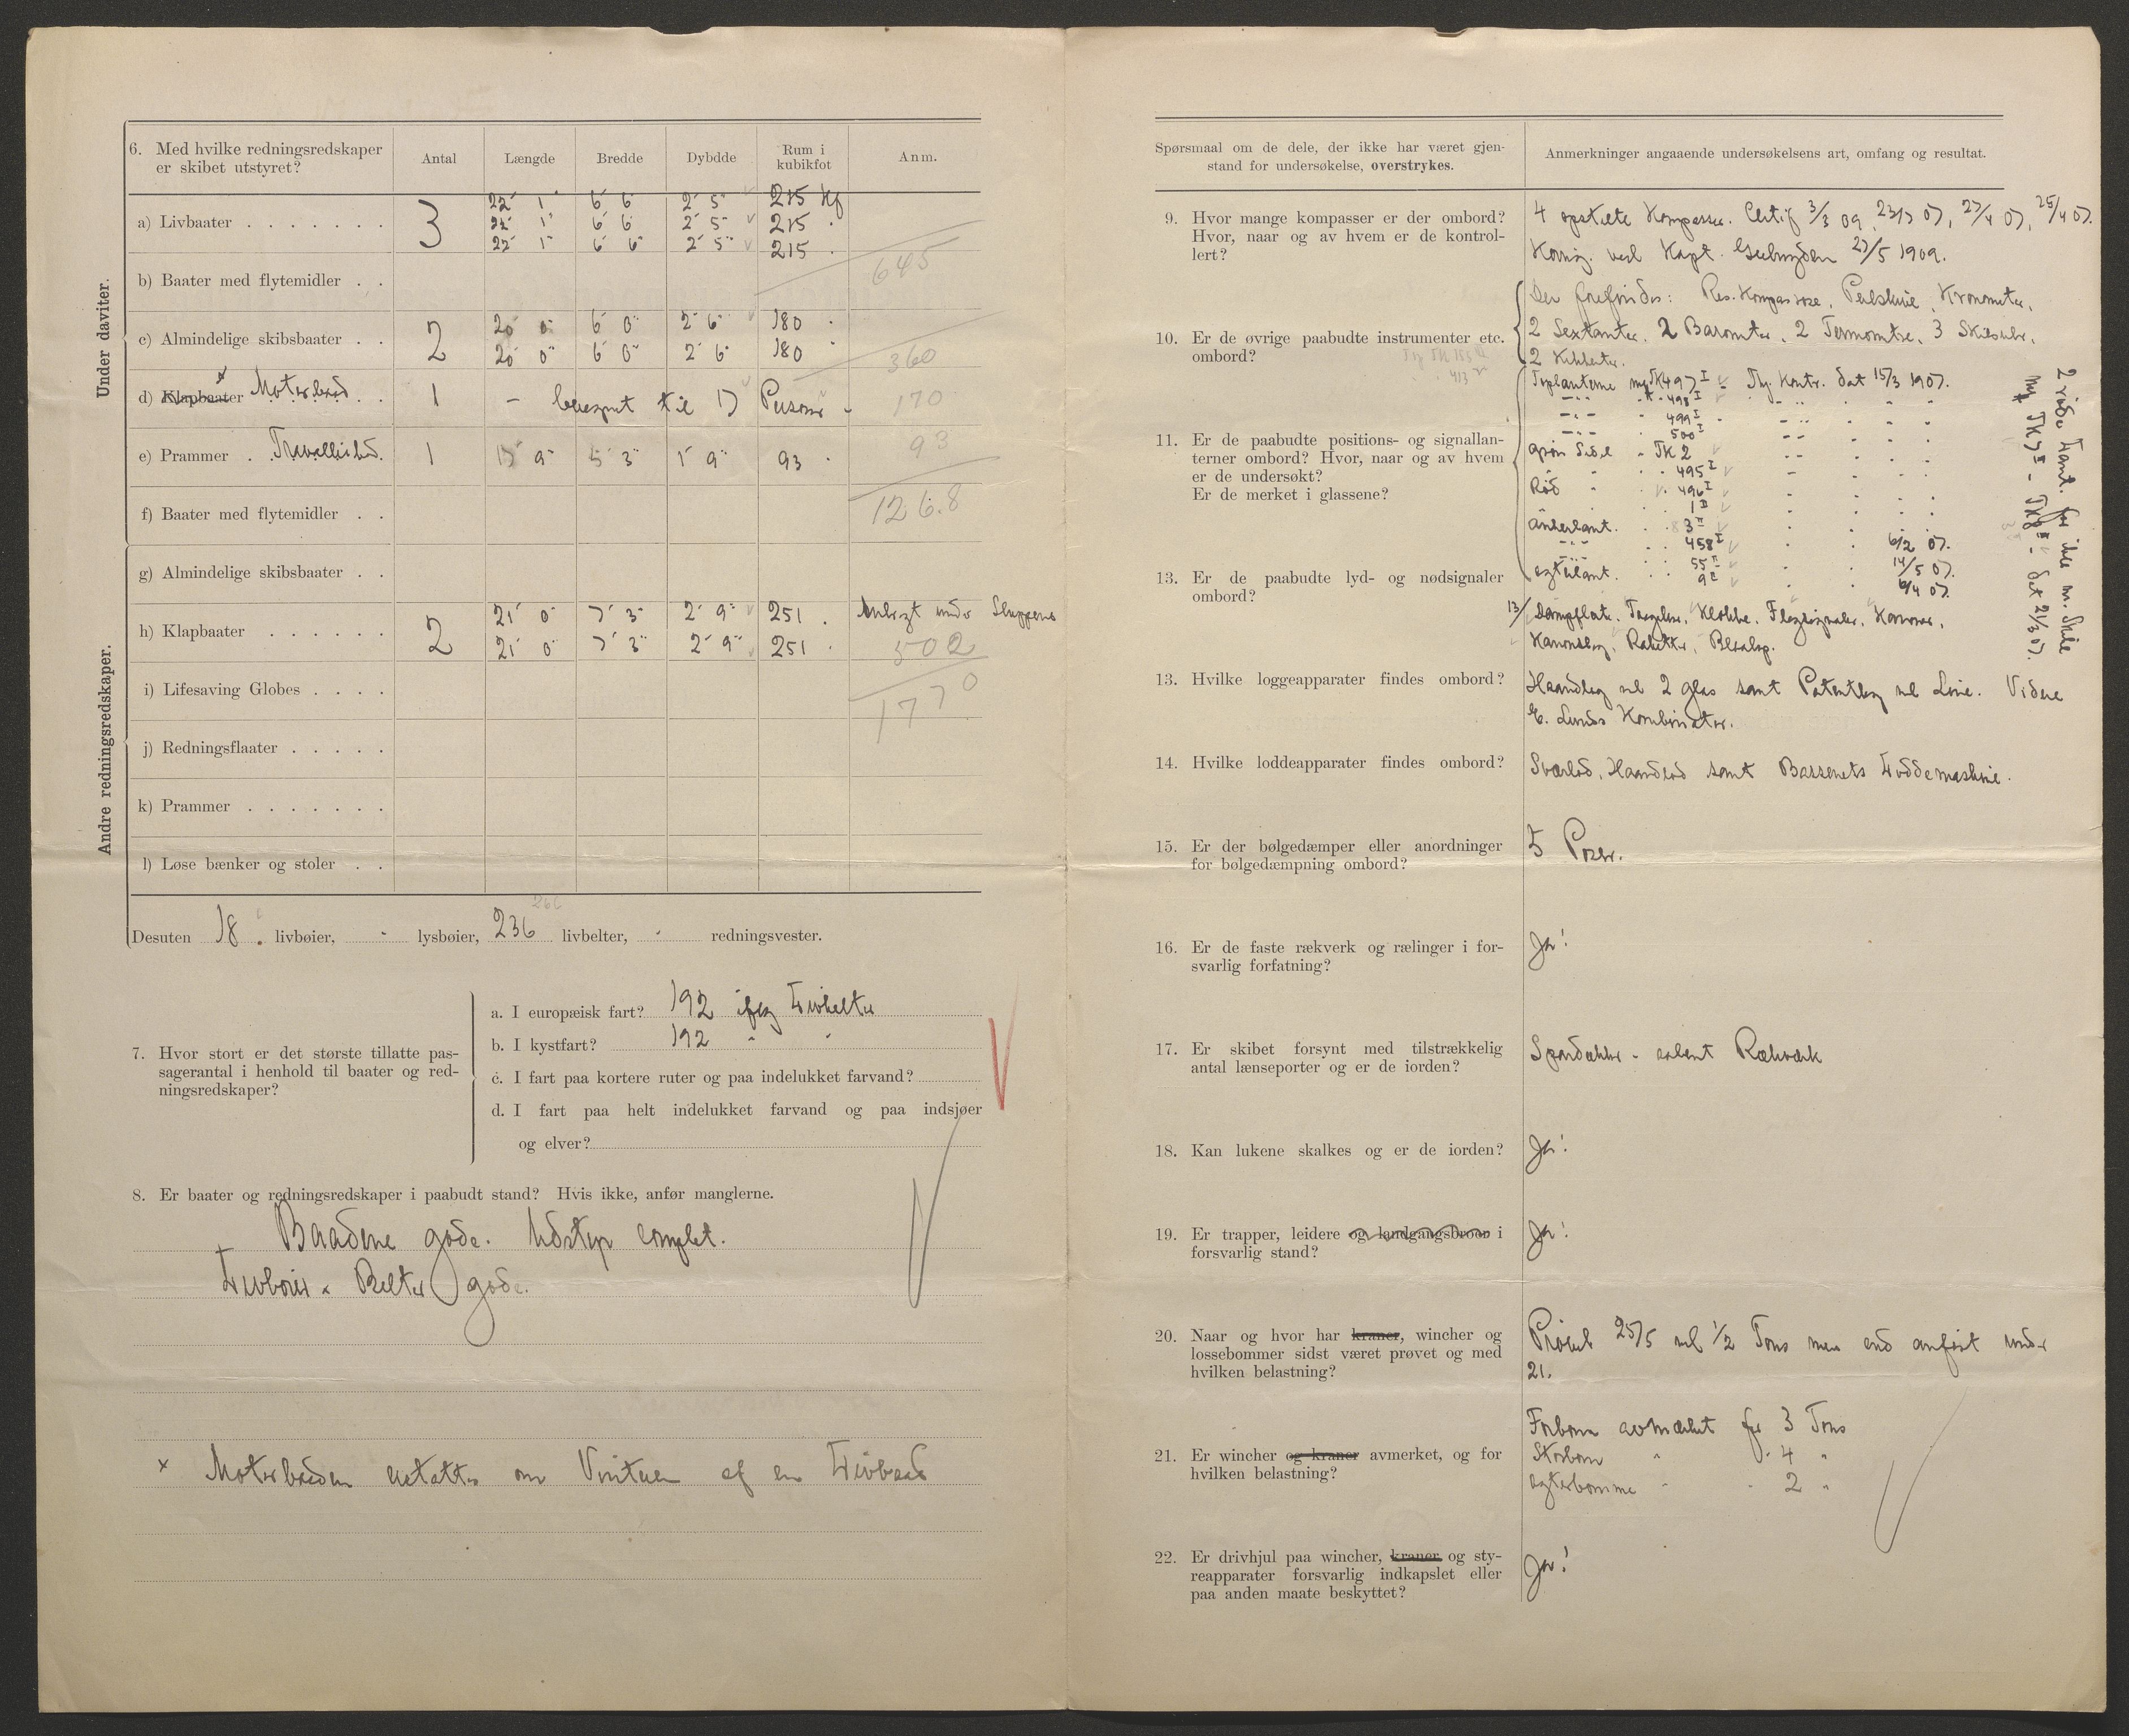 6. Med hvilke redningsredskaper er skibet utstyret?
Antal
Længde
Bredde
Dybdde
Rum i kubikfot
Anm.
Under daviter.
a) Livbaater . . . . . . .
3
22' 1" 6' 6" 2' 5" 215 Kf
22' 1" 6' 6" 2' 5" 215 "
22' 1" 6' 6" 2' 5" 215 "
645
b) Baater med flytemidler . .
c) Almindelige skibsbaater . .
2
20' 0" 6' 0" 2' 6" 180 "
20' 0" 6' 0" 2' 6" 180 "
360
d) Klapbaater Motorbaad . .
1 - beregnet til 17 Personer - 170
e) Prammer . Travalliebaad.
1 15' 9" 5' 3" 1' 9" 93 "
93
f) Baater med flytemidler . .
126.8
Andre redningsredskaper.
g) Almindelige skibsbaater . .
h) Klapbaater . . . . . .
2
21' 0" 7' 3" 2' 9" 251 . Anbragt under Slupperne
21' 0" 7' 3" 2' 9" 251 .
502
i) Lifesaving Globes . . . .
1770
j) Redningsflaater . . . . .
k) Prammer . . . . . . .
l) Løse bænker og stoler . .
Desuten 18 . livbøier, - lysbøier, 236 livbelter, - redningsvester.
7. Hvor stort er det største tillatte pas-
sagerantal i henhold til baater og red-
ningsredskaper?
a. I europæisk fart? 192 iflg Livbelter
b. I kystfart? 192 " "
c. I fart paa kortere ruter og paa indelukket farvand?
d. I fart paa helt indelukket farvand og paa indsjøer
og elver?
8. Er baater og redningsredskaper i paabudt stand? Hvis ikke, anfør manglerne.
Baadene gode. Udstyr complet.
Livbøier & Belter gode.
x Motorbaaden erstattes om Vinteren af en Livbaad
Spørsmaal om de dele, der ikke har været gjen-
stand for undersøkelse, overstrykes.
Anmerkninger angaaende undersøkelsens art, omfang og resultat.
9. Hvor mange kompasser er der ombord?
Hvor, naar og av hvem er de kontrol-
lert?
4 opstilte Kompasser. Certif 3/3 09, 23/3 07, 27/4 07, 25/4 07.
Korrig. ved Kapt. Geelmuyden 27/5 1909.
10. Er de øvrige paabudte instrumenter etc.
ombord?
Der forefindes: Res. Kompasrose, Peilskive, Kronometer,
2 Sextanter, 2 Barometer, 2 Termometre, 3 Skibsuhr,
2 Kikkerter.
11. Er de paabudte positions- og signallan-
terner ombord? Hvor, naar og av hvem
er de undersøkt?
Er de merket i glassene?
Toplanterne mrk TK 497 I - Thj. Kontr. dat 15/3 1907.
-"- " " 498 I " -"- " " "
-"- " 499 I " -"- " " "
-"- " 500 I
Grøn Side l " TK 2
" " 495 I
Rød " " 496 I
" " 1 II
Ankerlant. " " 3 II
-"- " " 458 I " " 6/2 07.
-"- " " 55 II " " 14/5 07.
Agterlant. " " 9 II " " 6/4 07
2 røde Lant. for ikke m. Skib
mrk TK 7 II - TK 8 II - dat 21/3 07.
13. Er de paabudte lyd- og nødsignaler
ombord?
13/ Dampfløite, Taagelur, Klokke, Flagsignaler, Kanoner,
Kanonslag, Raketter, Blaalys.
13. Hvilke loggeapparater findes ombord?
Haandlog ml 2 glas samt Patentlog ml Line. Videre
E. Lunds Kombinator.
14. Hvilke loddeapparater findes ombord?
Sværlod, Haandlod samt Bassenets Loddemaskine.
15. Er der bølgedæmper eller anordninger
for bølgedæmpning ombord?
5 Poser.
16. Er de faste rækverk og rælinger i for-
svarlig forfatning?
Ja!
17. Er skibet forsynt med tilstrækkelig
antal lænseporter og er de iorden?
Spardækker - aabent Rækværk
18. Kan lukene skalkes og er de iorden?
Ja!
19. Er trapper, leidere og landgangsbroer i
forsvarlig stand?
Ja!
20. Naar og hvor har kraner, wincher og
lossebommer sidst været prøvet og med
hvilken belastning?
Prøvet 25/5 ml 1/2 Tons mer end anført under
21.
21. Er wincher og kraner avmerket, og for
hvilken belastning?
Forbom avmærket for 3 Tons
Storbom " " 4 "
Agterbomme " " 2 "
22. Er drivhjul paa wincher, kraner og sty-
reapparater forsvarlig indkapslet eller
paa anden maate beskyttet?
Ja!